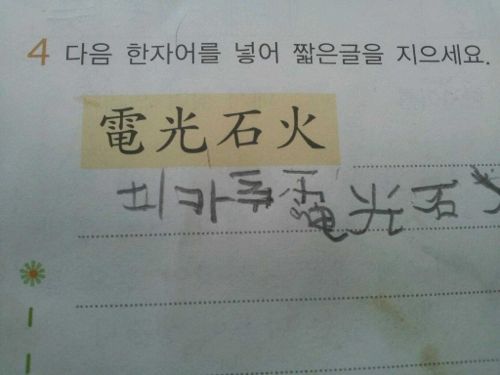 4 다음 한자어를 넣어 짧은글을 지으세요.
電光石火
피카츄 電光石